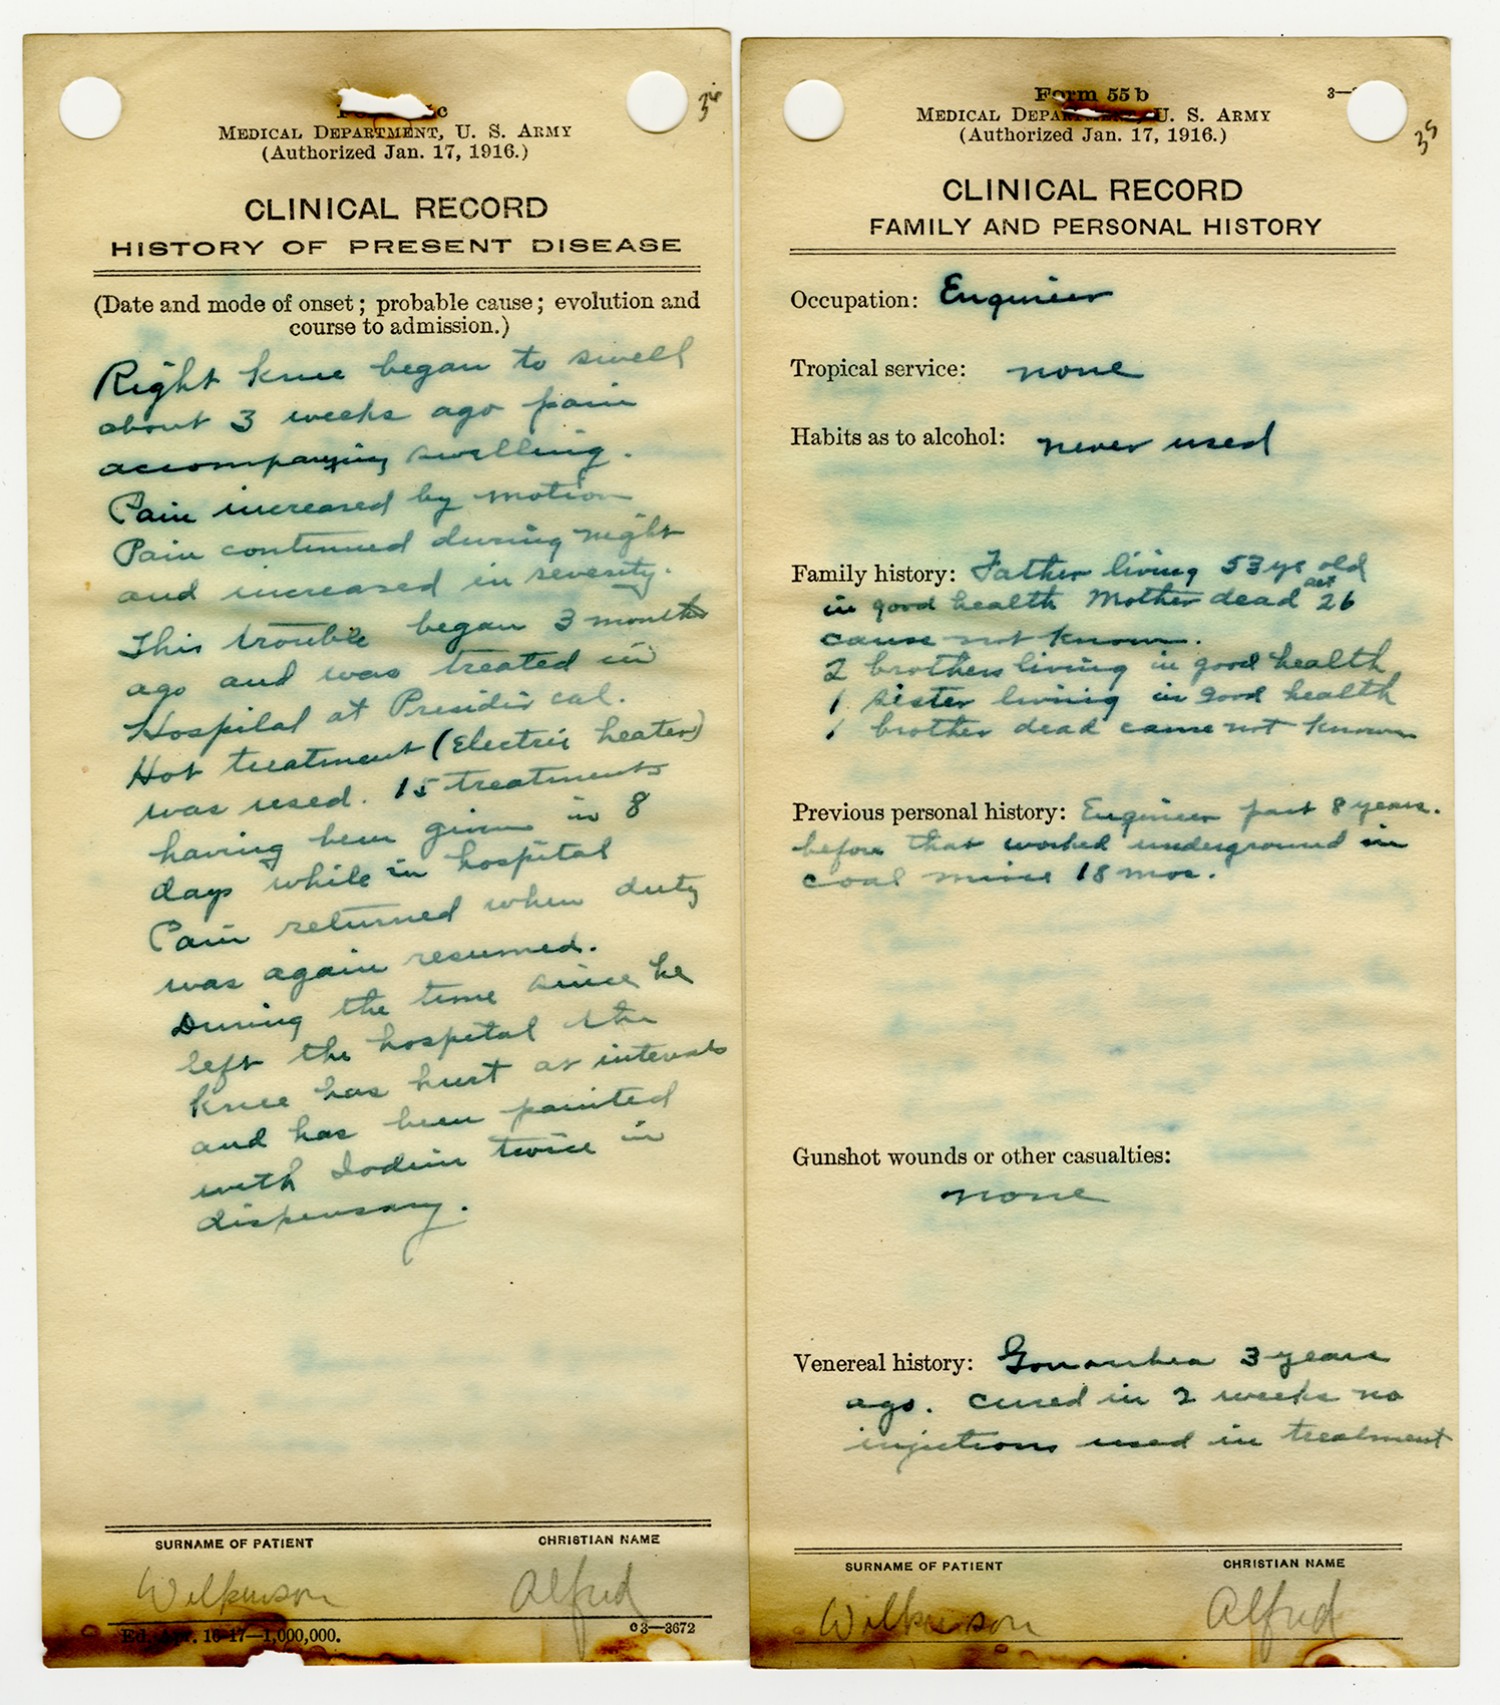 34
c
MEDICAL DEPARTMENT, U. S. ARMY
(Authorized Jan. 17, 1916.)
CLINICAL RECORD
HISTORY OF PRESENT DISEASE
(Date and mode of onset; probable cause; evolution and
course to admission.)
Right knee began to swell
about 3 weeks ago pain
accompanying swelling.
Pain increased by motion
Pain continued during night
and increased in severity.
This trouble began 3 months
ago and was treated in
Hospital at Presidio Cal.
Hot treatment (Electric heater)
was used. 15 treatments
having been given in 8
days while in hospital
Pain returned when duty
was again resumed.
During the time since he
left the hospital the
knee has hurt at intervals
and has been painted
with Iodine twice in
dispensary.
SURNAME OF PATIENT CHRISTIAN NAME
Wilkinson Alfred
Ed. Apr. 16-17—1,000,000. 3—3672
Form 55 b 3—
35
MEDICAL DEPARTMENT, U. S. ARMY
(Authorized Jan. 17, 1916.)
CLINICAL RECORD
FAMILY AND PERSONAL HISTORY
Occupation: Engineer
Tropical service: none
Habits as to alcohol: never used
Family history: Father living 53 yrs old
in good health Mother dead aet 26
cause not known.
2 brothers living in good health
1 sister living in good health
1 brother dead cause not known
Previous personal history: Engineer past 8 years.
before that worked underground in
coal mine 18 mos.
Gunshot wounds or other casualties:
none
Venereal history: Gonorrhea 3 years
ago. cured in 2 weeks no
injections used in treatment
SURNAME OF PATIENT CHRISTIAN NAME
Wilkinson Alfred